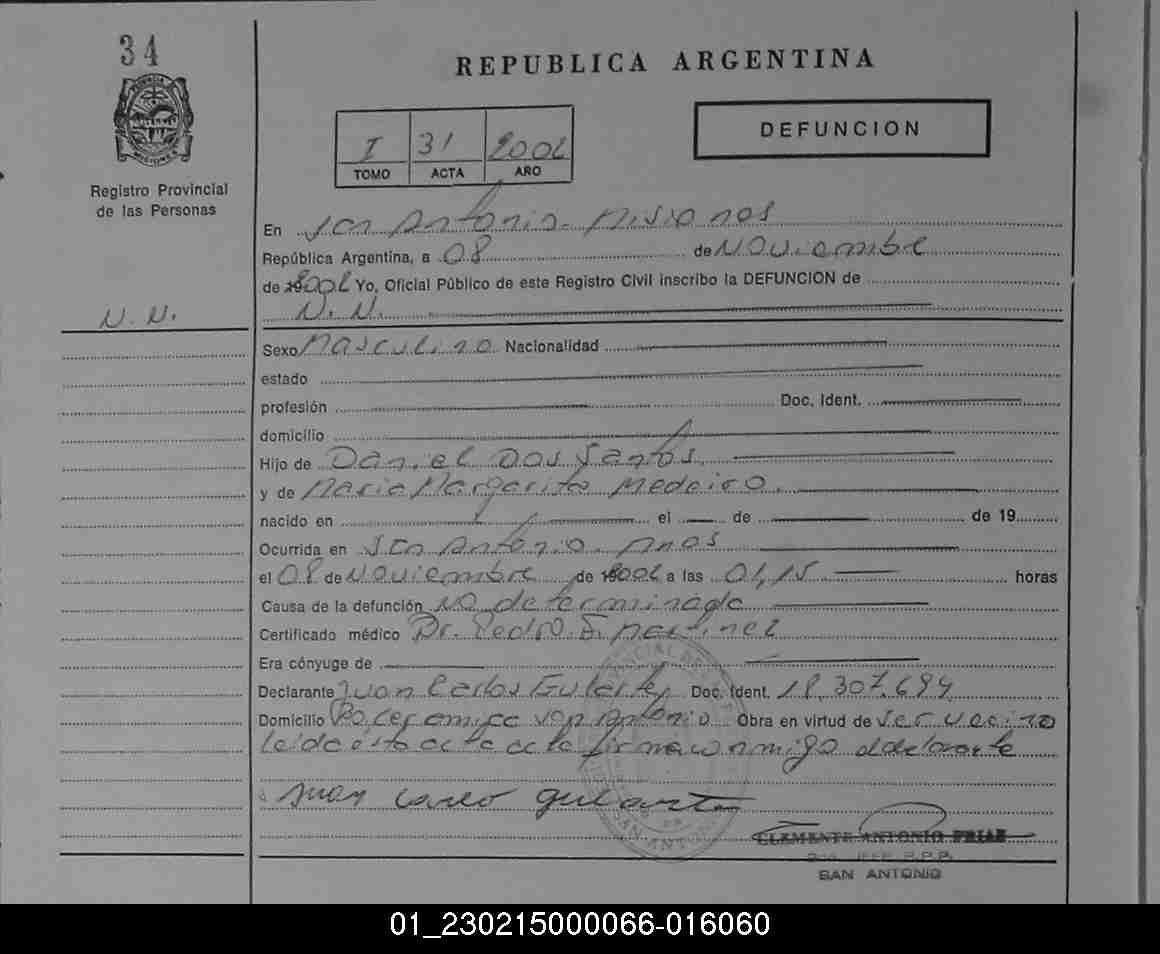 34
REPUBLICA ARGENTINA
PROVINCIA
MISIONES
DEFUNCION
I 31 2002
TOMO ACTA AÑO
Registro Provincial
de las Personas
En San Antonio. Misiones
República Argentina, a 08 de Noviembre
de 2002 Yo, Oficial Público de este Registro Civil inscribo la DEFUNCION de
N. N.
N. N.
Sexo Masculino Nacionalidad
estado
profesión Doc. Ident.
domicilio
Hijo de Daniel Dos Santos
y de Maria Margarita Medeiro.
nacido en el de de 19
Ocurrida en San Antonio. Mnes
el 08 de Noviembre de 2002 a las 01,15 horas
Causa de la defunción no determinada
Certificado médico Dr. Pedro E. Martinez
Era cónyuge de
Declarante Juan Carlos Gularte Doc. Ident. 18.307.694
Domicilio San Antonio Obra en virtud de ser vecino
leida esta acta la firma conmigo el declarante
Juan Carlo Gularte
CLEMENTE ANTONIO FRIAS
SAN ANTONIO
01_230215000066-016060